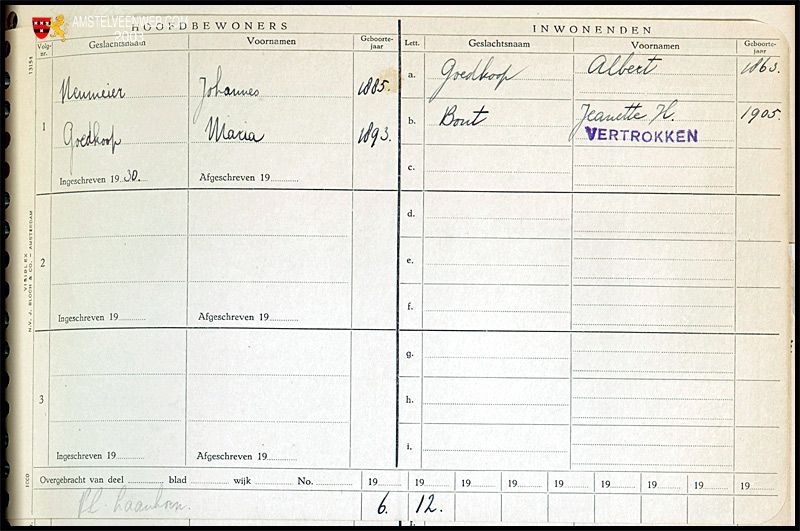 AMSTELVEENWEB.COM
2003
HOOFDBEWONERS
INWONENDEN
Volg-nr. Geslachtsnaam Voornamen Geboorte-jaar
Lett. Geslachtsnaam Voornamen Geboorte-jaar
13154
1
Neumeier Johannes 1885.
Goedkoop Maria 1893.
Ingeschreven 19 30. Afgeschreven 19
a. Goedkoop Albert 1863.
b. Bout Jeanette H. 1905.
VERTROKKEN
c.
2
Ingeschreven 19 Afgeschreven 19
d.
e.
f.
VISIBLEX
N.V. J. BLOCH & CO. - AMSTERDAM
3
Ingeschreven 19 Afgeschreven 19
g.
h.
i.
Overgebracht van deel blad wijk No. 19 19 19 19 19 19 19 19 19
6. 12.